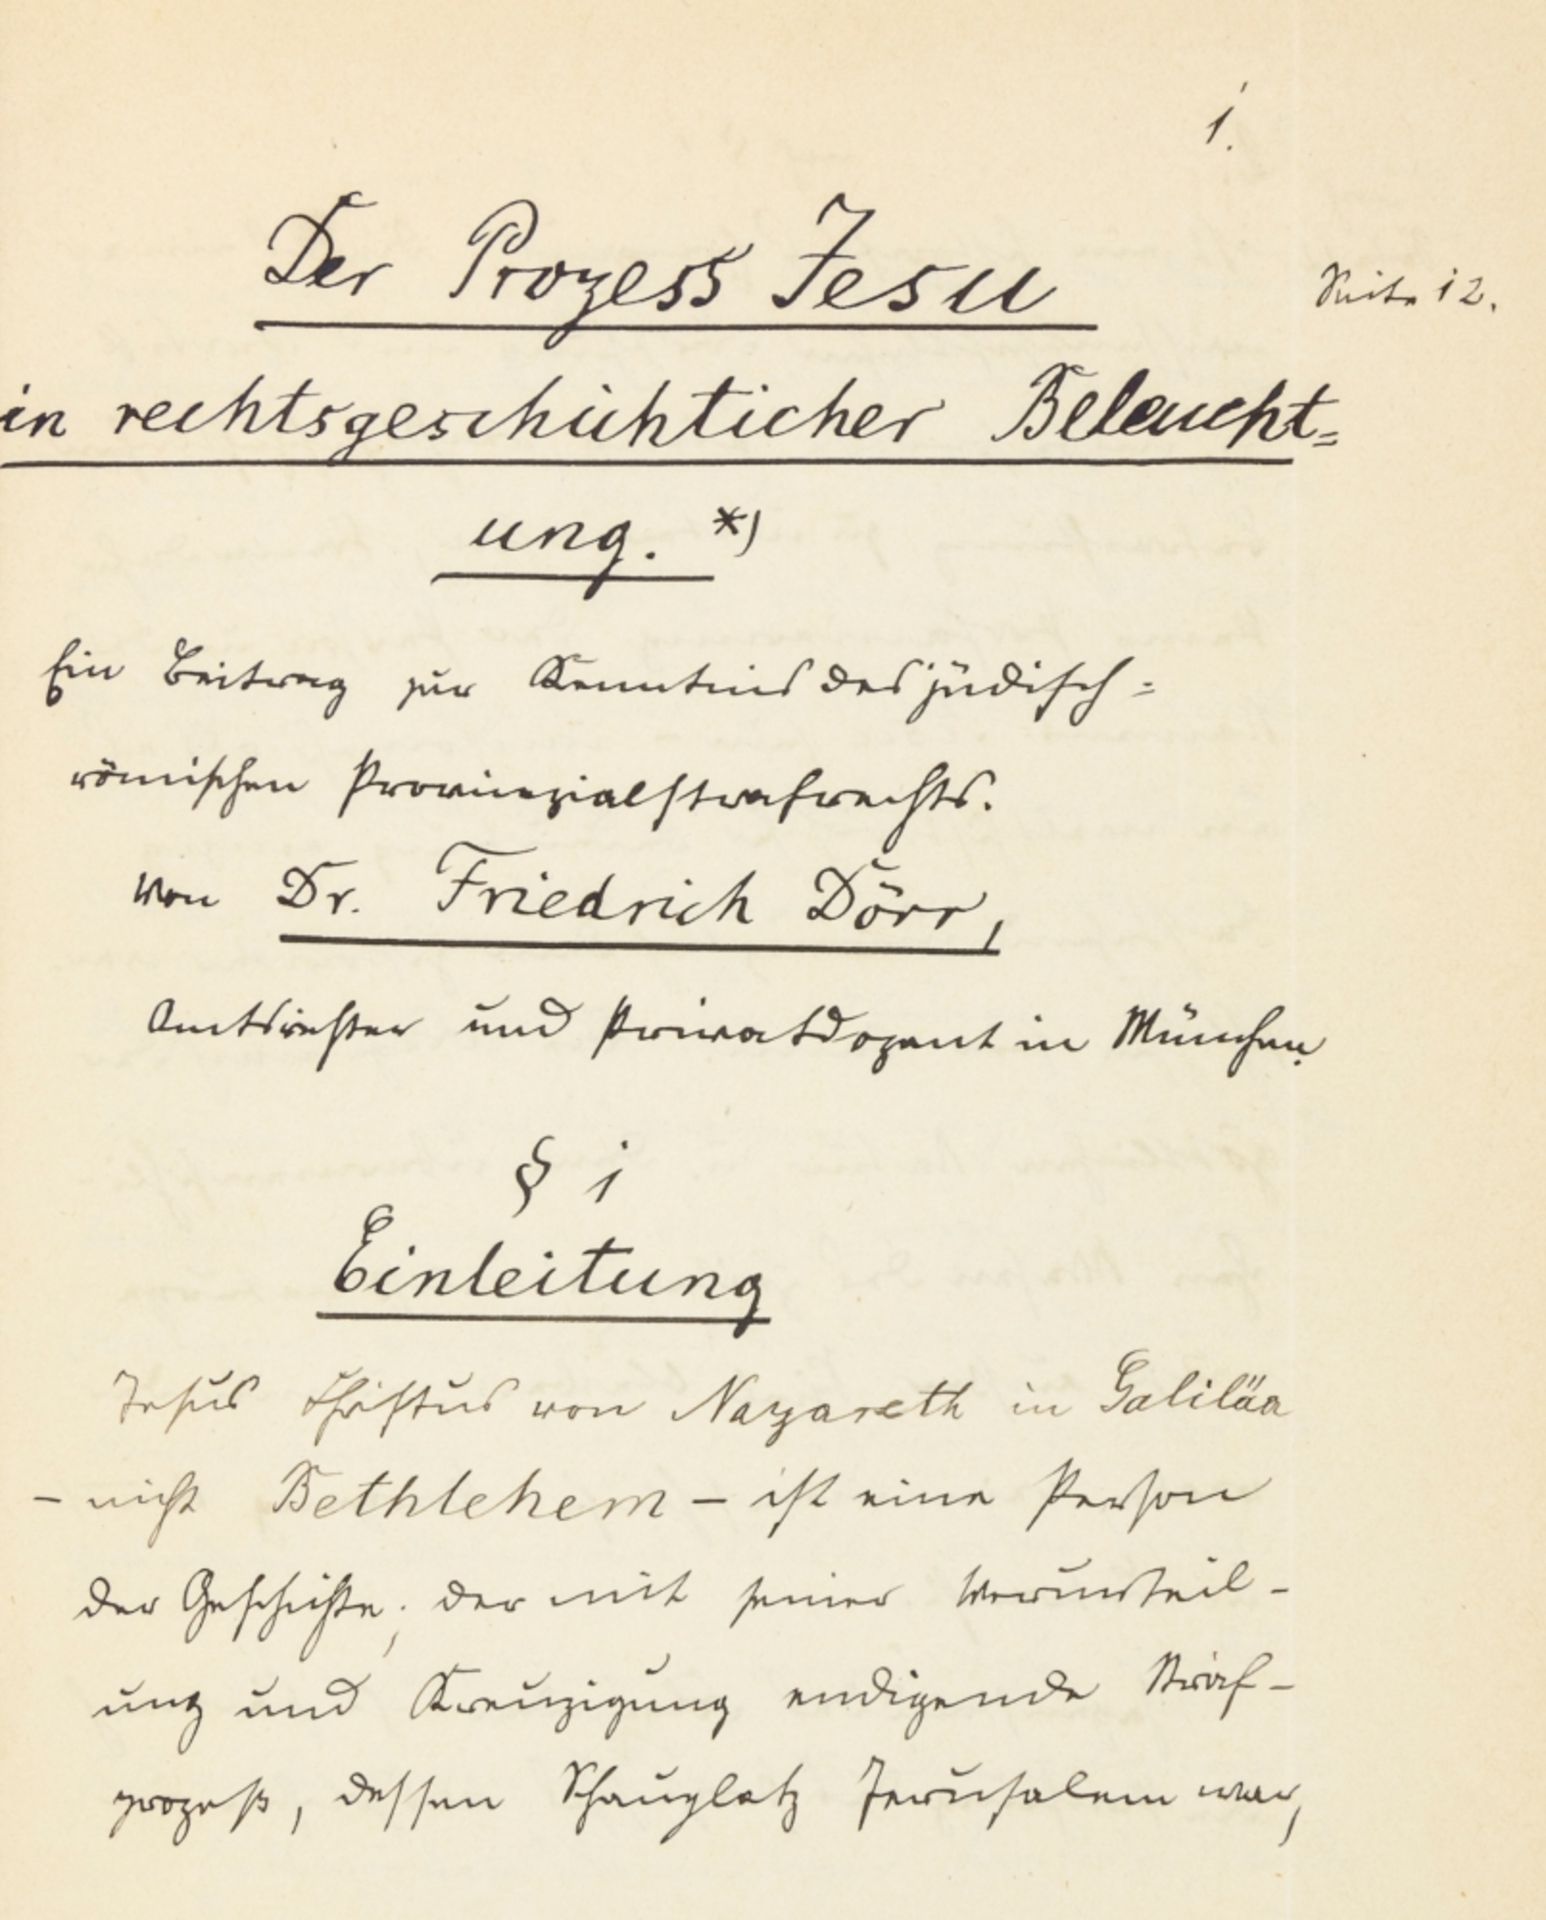 1.
Der Prozess Jesu
Seite 12.
in rechtsgeschichtlicher Beleucht=
ung. *)
Ein Beitrag zur Kenntnis des jüdisch=
römischen Provinzialstrafrechts.
Von Dr. Friedrich Dörr,
Amtsrichter und Privatdozent in München.
§ 1
Einleitung
Jesus Christus von Nazareth in Galiläa
– nicht Bethlehem – ist eine Person
der Geschichte; der mit seiner Verurteil-
ung und Kreuzigung endigende Straf-
prozeß, dessen Schauplatz Jerusalem war,